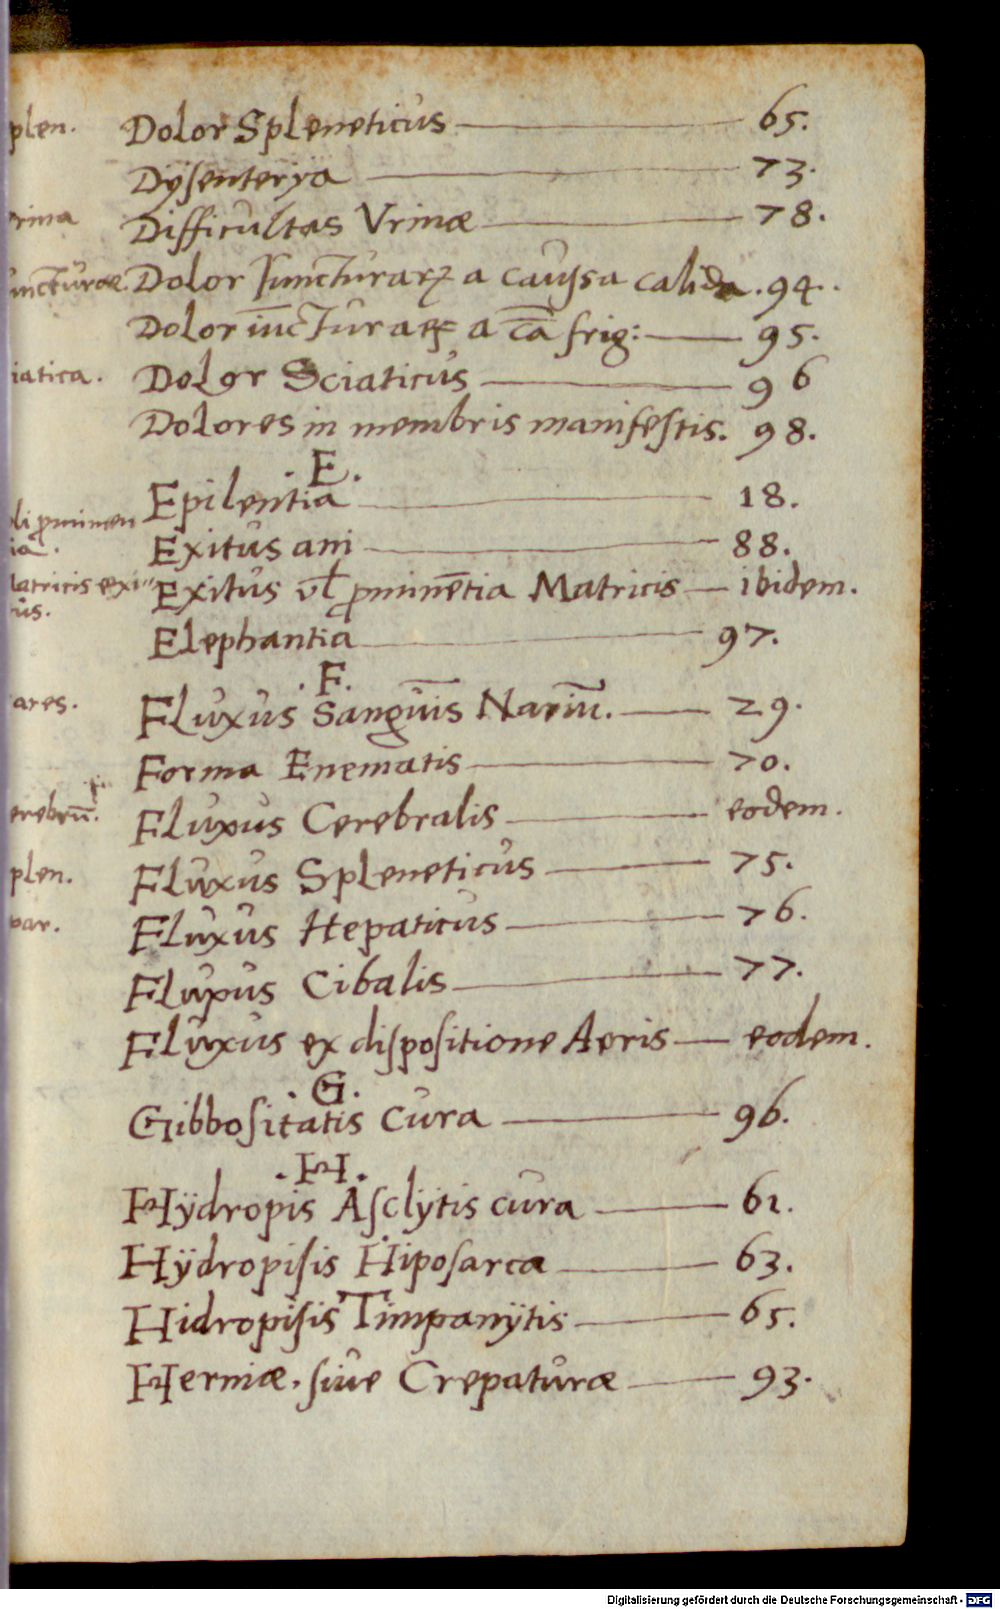 plen. Dolor Spleneticus 65.
Dÿsenterÿa 73.
rina Difficultas Vrinæ 78.
uncturæ. Dolor Juncturarꝝ a causa calida. 94.
Dolor iūcturaꝝ a cā frig: 95.
iatica. Dolor Sciaticus 96
Dolores in membris manifestis. 98.
. E .
Epilentia 18.
li ꝓminen
ia. Exitus ani 88.
latricis exi" Exitus vl ꝓminētia Matricis ibidem.
us.
Elephantia 97.
. F.
ares. Fluxus Sanguīis Nariū. 29.
Forma Enematis 70.
erebrū. Fluxus Cerebralis eodem.
plen. Fluxus Spleneticus 75.
par. Fluxus Hepaticus 76.
Fluxus Cibalis 77.
Fluxus ex dispositione Aeris eodem.
. G.
Gibbositatis cura 96.
. H .
Hÿdropis Asclÿtis cura 61.
Hÿdropisis Hiposarca 63.
Hidropisis Timpanÿtis 65.
Herniæ. siue Crepaturæ 93.
Digitalisierung gefördert durch die Deutsche Forschungsgemeinschaft - DFG